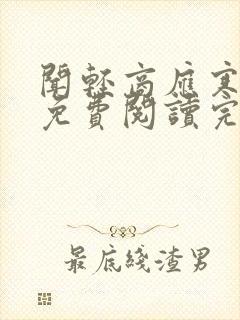 聞輕高雁寒
免費閱讀完
最底綫渣男